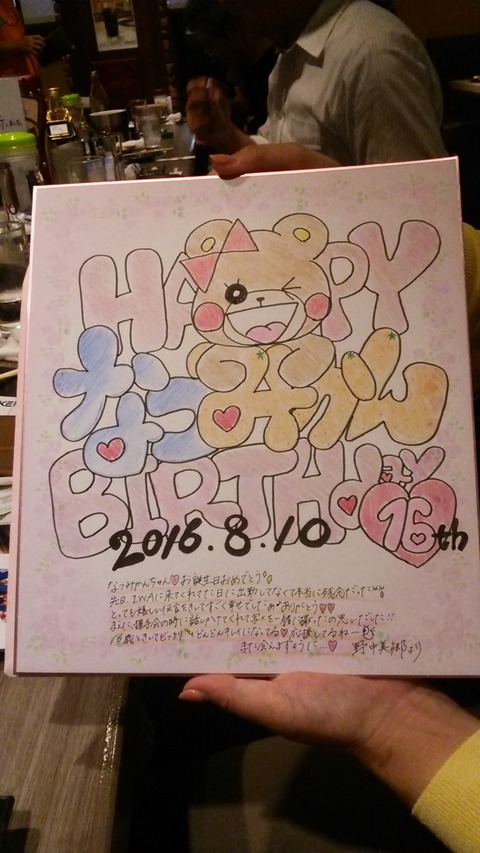 HAPPY
なつみかん
BIRTHdaY
16th
2016.8.10
なつみかんちゃん♡お誕生日おめでとう
先日、IWAに来てくれてた日に出勤してなくて本当に残念だった
とっても嬉しい伝言をきいてすごく幸せでした ありがとう♡♡
また、握手会の時に話しかけてくれて写メを一緒に撮ったの思いだした!!
16歳ときいてビックリ どんどんキレイになってる♡応援してるねー
また会えますように…♡ 野中美郷より